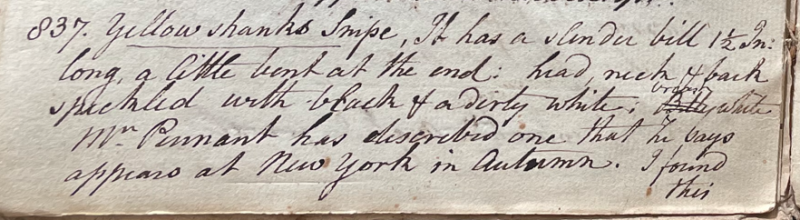 837. Yellow shanks Snipe, It has a slender bill 1½ In:
long, a little bent at the end: head, neck & back
speckled with black & a dirty white; breast white
Mr. Pennant has described one that he says
appears at New York in Autumn. I found
this